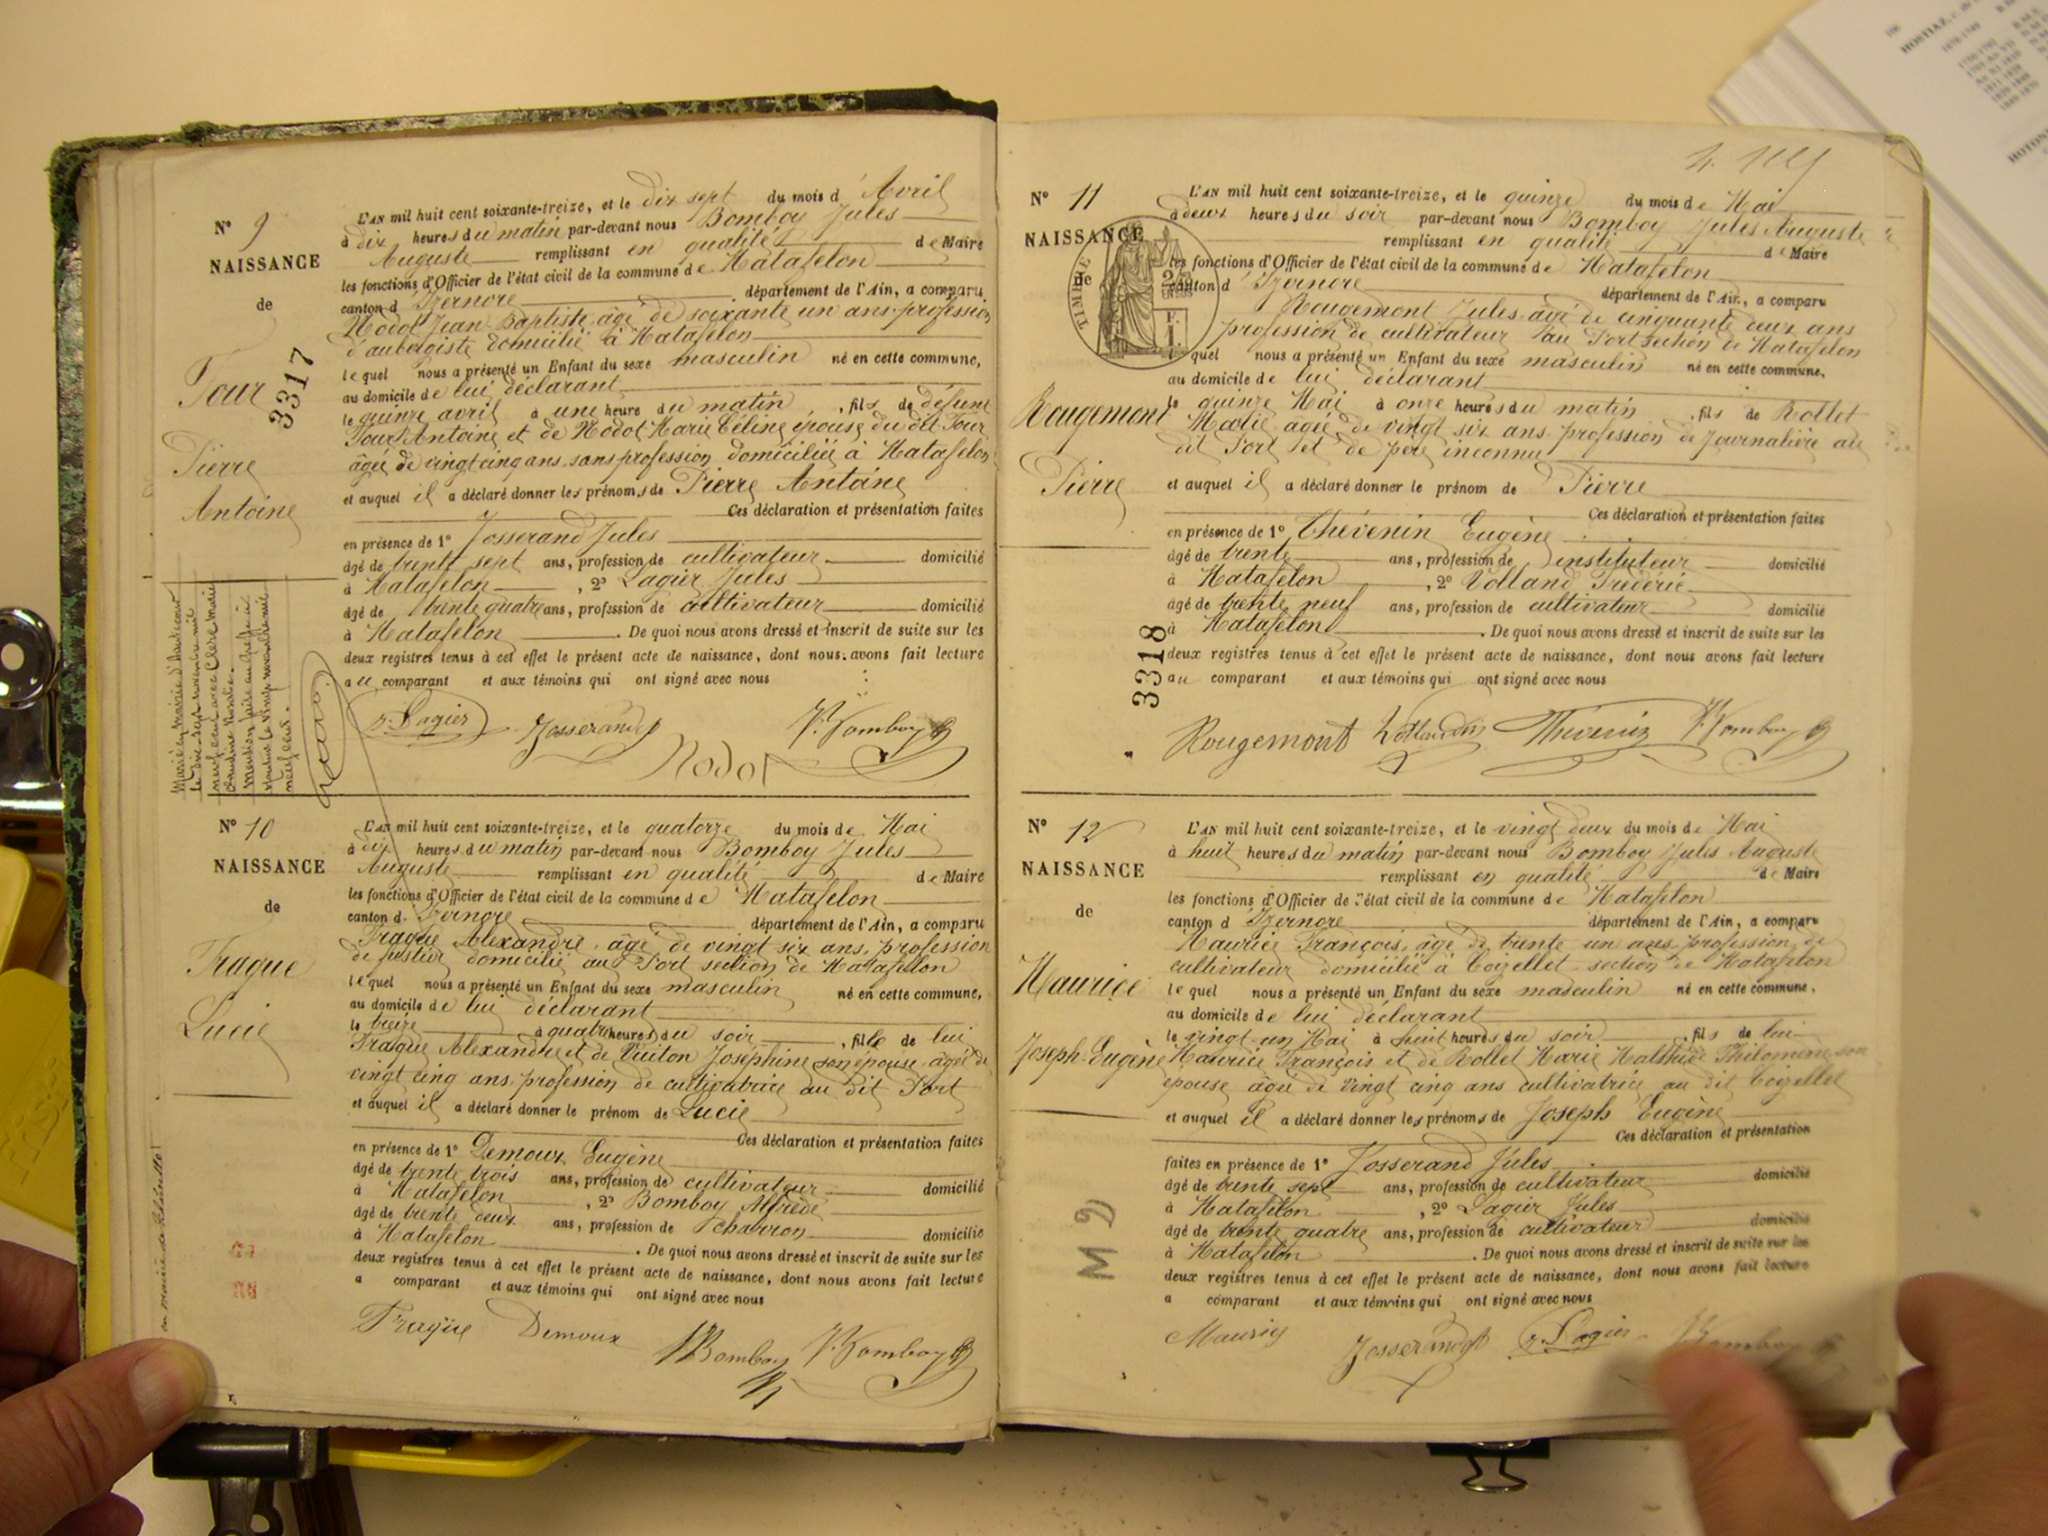 N° 9
NAISSANCE
de
Tour
Pierre
Antoine
3317
L'AN mil huit cent soixante-treize, et le dix sept du mois d'Avril
à dix heures du matin par-devant nous Bomboy Jules
Auguste remplissant en qualité de Maire
les fonctions d'Officier de l'état civil de la commune de Matafelon
canton d'Izernore département de l'Ain, a comparu
Nodot Jean Baptiste âgé de soixante un ans profession
d'aubergiste domicilié à Matafelon
lequel nous a présenté un Enfant du sexe masculin né en cette commune,
au domicile de lui déclarant
le quinze avril à une heure du matin, fils de défunt
Tour Antoine et de Nodot Marie Céline épouse du dit Tour
âgée de vingt cinq ans sans profession domiciliée à Matafelon
et auquel il a déclaré donner les prénoms de Pierre Antoine
Ces déclaration et présentation faites
en présence de 1° Josserand Jules
âgé de trente sept ans, profession de cultivateur domicilié
à Matafelon, 2° Lagier Jules
âgé de trente quatre ans, profession de cultivateur domicilié
à Matafelon. De quoi nous avons dressé et inscrit de suite sur les
deux registres tenus à cet effet le présent acte de naissance, dont nous avons fait lecture
au comparant et aux témoins qui ont signé avec nous
J. Lagier Josserand J. Bomboy
Nodot
Marié en mairie d'
le dix-sept novembre mil
neuf cent avec Clerc Marie
mention faite au greffe le
mil neuf cent.
N° 10
NAISSANCE
de
Frague
Lucie
L'AN mil huit cent soixante-treize, et le quatorze du mois de Mai
à dix heures du matin par-devant nous Bomboy Jules
Auguste remplissant en qualité de Maire
les fonctions d'Officier de l'état civil de la commune de Matafelon
canton d'Izernore département de l'Ain, a comparu
Frague Alexandre âgé de vingt six ans, profession
de domicilié au Port section de Matafelon
lequel nous a présenté un Enfant du sexe masculin né en cette commune,
au domicile de lui déclarant
le treize à quatre heures du soir, fille de lui
Frague Alexandre et de Vuiton Josephine son épouse âgée de
vingt cinq ans profession de cultivatrice au dit Port
et auquel il a déclaré donner le prénom de Lucie
Ces déclaration et présentation faites
en présence de 1° Demoux Eugène
âgé de trente trois ans, profession de cultivateur domicilié
à Matafelon, 2° Bomboy Alfrède
âgé de trente deux ans, profession de charron domicilié
à Matafelon. De quoi nous avons dressé et inscrit de suite sur les
deux registres tenus à cet effet le présent acte de naissance, dont nous avons fait lecture
a comparant et aux témoins qui ont signé avec nous
Frague Demoux Bomboy J. Bomboy
N° 11
NAISSANCE
de
Rougemont
Pierre
3318
TIMBRE
L'AN mil huit cent soixante-treize, et le quinze du mois de Mai
à deux heures du soir par-devant nous Bomboy Jules Auguste
remplissant en qualité de Maire
les fonctions d'Officier de l'état civil de la commune de Matafelon
canton d'Izernore département de l'Ain, a comparu
Rougemont Jules âgé de cinquante deux ans
profession de cultivateur au Port section de Matafelon
lequel nous a présenté un Enfant du sexe masculin né en cette commune,
au domicile de lui déclarant
le quinze Mai à onze heures du matin, fils de Rollet
Marie âgée de vingt six ans profession de journalière au
dit Port et de père inconnu
et auquel il a déclaré donner le prénom de Pierre
Ces déclaration et présentation faites
en présence de 1° Thévenin Eugène
âgé de trente ans, profession de instituteur domicilié
à Matafelon, 2° Volland Fréderic
âgé de trente neuf ans, profession de cultivateur domicilié
à Matafelon. De quoi nous avons dressé et inscrit de suite sur les
deux registres tenus à cet effet le présent acte de naissance, dont nous avons fait lecture
au comparant et aux témoins qui ont signé avec nous
Rougemont Volland Thévenin J. Bomboy
N° 12
NAISSANCE
de
Maurice
Joseph-Eugène
M D
L'AN mil huit cent soixante-treize, et le vingt deux du mois de Mai
à huit heures du matin par-devant nous Bomboy Jules Auguste
remplissant en qualité de Maire
les fonctions d'Officier de l'état civil de la commune de Matafelon
canton d'Izernore département de l'Ain, a comparu
Maurice François, âgé de trente un ans profession de
cultivateur domicilié à Coizellet section de Matafelon
lequel nous a présenté un Enfant du sexe masculin né en cette commune,
au domicile de lui déclarant
le vingt un Mai à huit heures du soir, fils de lui
Maurice François et de Rollet Marie Mathilde Philomène son
épouse âgée de vingt cinq ans cultivatrice au dit Coizellet
et auquel il a déclaré donner les prénoms de Joseph Eugène
Ces déclaration et présentation
faites en présence de 1° Josserand Jules
âgé de trente sept ans, profession de cultivateur domicilié
à Matafelon, 2° Lagier Jules
âgé de trente quatre ans, profession de cultivateur domicilié
à Matafelon. De quoi nous avons dressé et inscrit de suite sur les
deux registres tenus à cet effet le présent acte de naissance, dont nous avons fait lecture
a comparant et aux témoins qui ont signé avec nous
Maurice Josserand J. Lagier J. Bomboy